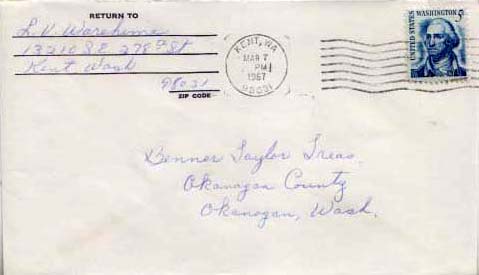 RETURN TO
L. V. Wareheime
13210 S E 278th St
Kent, Wash
98031
ZIP CODE
KENT, WA
MAR 7
PM
1967
98031
UNITED STATES
WASHINGTON 5c
Benner Taylor Treas.
Okanogan County
Okanogan, Wash.